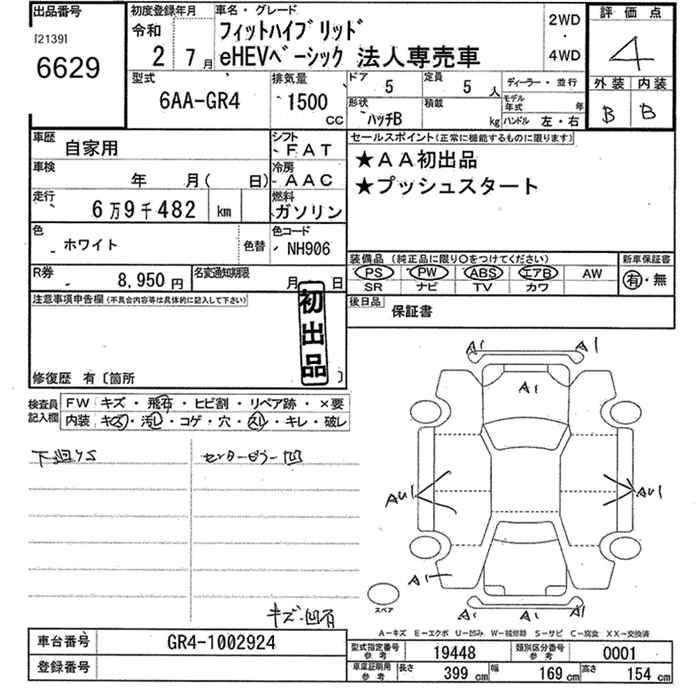 出品番号
[2139]
6629
初度登録年月
令和
2年 7月
車名・グレード
フィットハイブリッド
eHEVベーシック 法人専売車
2WD
・
4WD
評価点
4
外装 内装
B B
型式
6AA-GR4
排気量
1500
CC
ドア
5
定員
5 人
ディーラー・並行
形状
ハッチB
積載
kg
モデル年式
年
ハンドル 左・右
車歴
自家用
シフト
FAT
車検
年 月( 日)
冷房
AAC
走行
6万9千482 km
燃料
ガソリン
色
ホワイト
色替
色コード
NH906
R券
8,950円
名変通知期限
月 日
セールスポイント(正常に機能するものに限ります)
★AA初出品
★プッシュスタート
装備品(純正品に限り○をつけてください)
PS PW ABS エアB AW
SR ナビ TV カワ
新車保証書
有・無
後日品
保証書
注意事項申告欄(不具合内容等は具体的に記入して下さい)
初出品
修復歴 有〔箇所
検査員記入欄
FW キズ・飛石・ヒビ割・リペア跡・×要
内装 キズ・汚レ・コゲ・穴・スレ・キレ・破レ
下廻サビ
センターピラー凹
キズ・凹有
A1
A1
A1
AU1
AU1
A1
A1
A1
A1
スペア
A−キズ E−エクボ U−凹み W−補修跡 S−サビ C−腐食 XX−交換済
車台番号
GR4-1002924
登録番号
型式指定番号参考
19448
類別区分番号参考
0001
車庫証明用参考
長さ 399 cm
幅 169 cm
高さ 154 cm